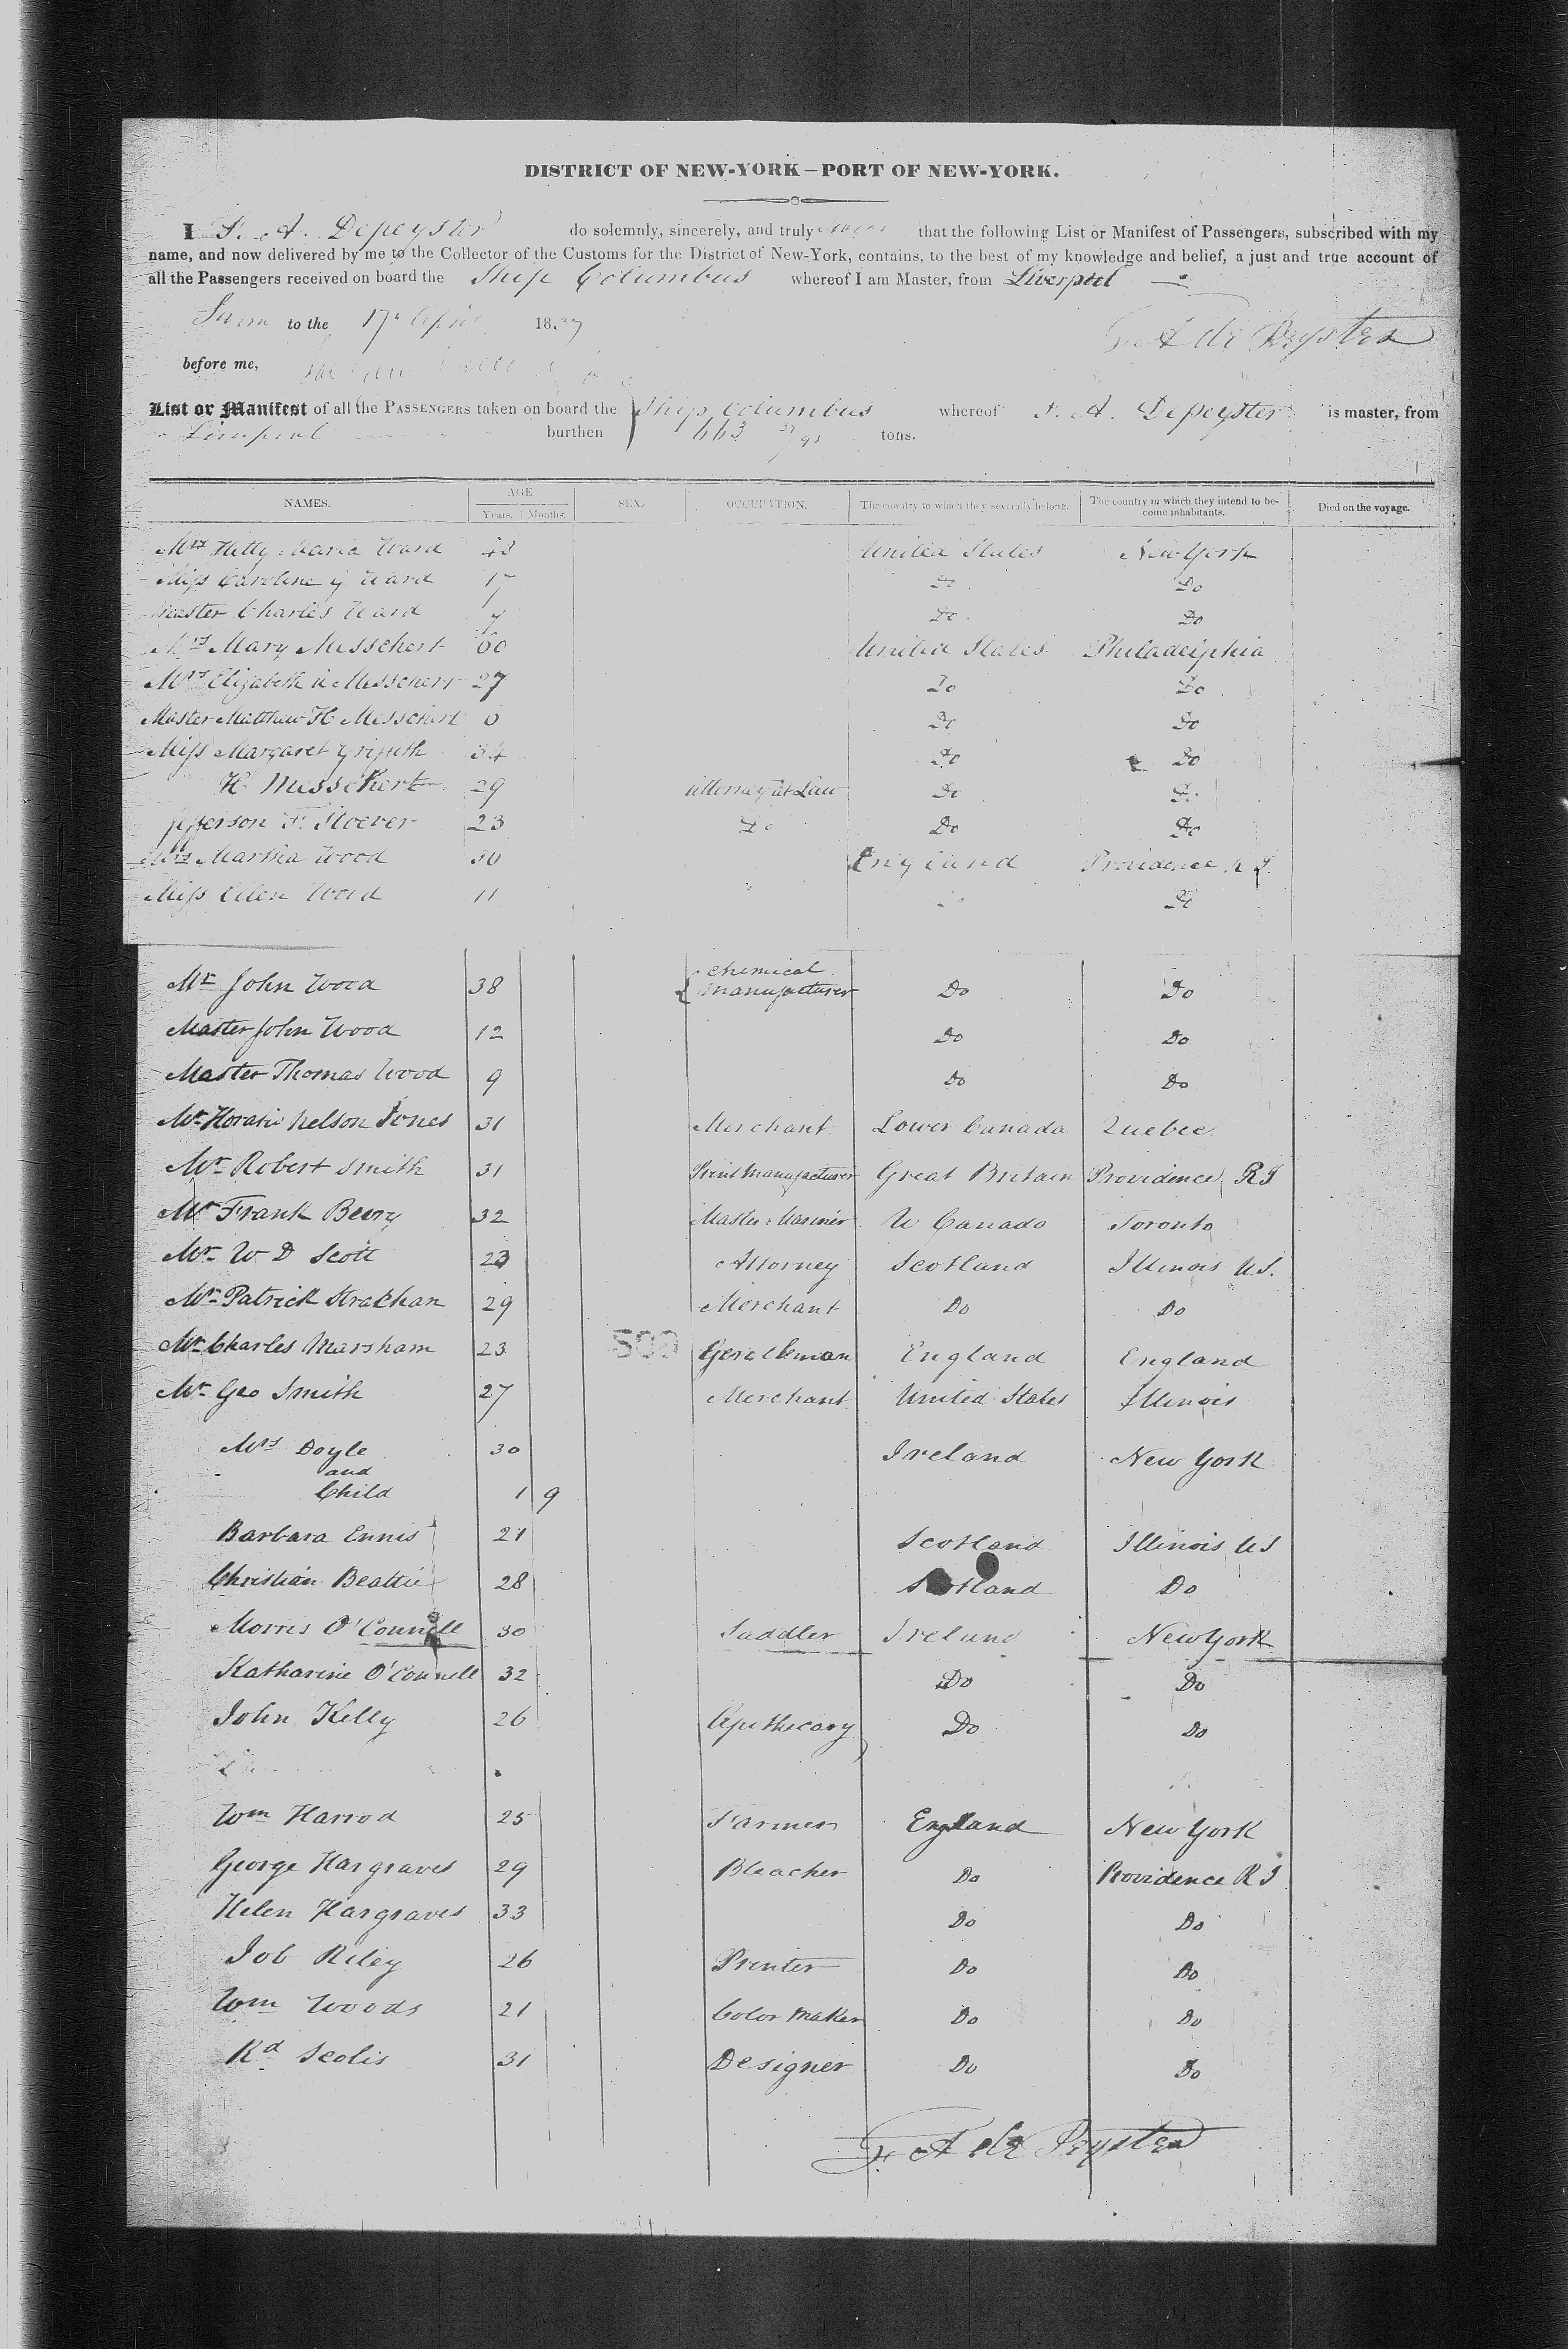 DISTRICT OF NEW-YORK—PORT OF NEW-YORK.
I F. A. Depeyster do solemnly, sincerely, and truly swear that the following List or Manifest of Passengers, subscribed with my
name, and now delivered by me to the Collector of the Customs for the District of New-York, contains, to the best of my knowledge and belief, a just and true account of
all the Passengers received on board the Ship Columbus whereof I am Master, from Liverpool
Sworn to the 17th April 1837
F A de Peyster
before me,
List or Manifest of all the PASSENGERS taken on board the Ship Columbus whereof F. A. Depeyster is master, from
Liverpool burthen 663 tons.
NAMES. AGE. Years. Months. SEX. OCCUPATION. The country to which they severally belong. The country in which they intend to become inhabitants. Died on the voyage.
Mrs Hetty Maria Ward 43 United States New York
Miss Caroline G Ward 17 Do Do
Master Charles Ward Do Do
Mrs Mary Messchert 60 United States Philadelphia
Mrs Elizabeth Messchert 27 Do Do
Master Matthew H Messchert 6 Do Do
Miss Margaret Griffith 34 Do Do
H Messchert 29 Attorney at Law Do Do
Jefferson F. Stoever 23 Do Do Do
Mrs Martha Wood 30 England Providence R I
Miss Ellen Wood 11 Do
Mr John Wood 38 chemical manufacturer Do Do
Master John Wood 12 Do Do
Master Thomas Wood 9 Do Do
Mr Horatio Nelson Jones 31 Merchant Lower Canada Quebec
Mr Robert Smith 31 Print Manufacturer Great Britain Providence R I
Mr Frank Berry 32 Master Mariner U Canada Toronto
Mr W D Scott 23 Attorney Scotland Illinois U.S.
Mr Patrick Strachan 29 Merchant Do Do
Mr Charles Marsham 23 Gentleman England England
Mr Geo Smith 27 Merchant United States Illinois
Mrs Doyle 30 Ireland New York
and
Child 1 9
Barbara Ennis 21 Scotland Illinois US
Christian Beattie 28 Scotland Do
Morris O'Connell 30 Saddler Ireland New York
Katharine O'Connell 32 Do Do
John Kelly 26 Apothecary Do Do
Wm Harrod 25 Farmer England New York
George Hargraves 29 Bleacher Do Providence R I
Helen Hargraves 33 Do Do
Job Riley 26 Printer Do Do
Wm Woods 21 Color Maker Do Do
Rd Scolis 31 Designer Do Do
F. A de Peyster